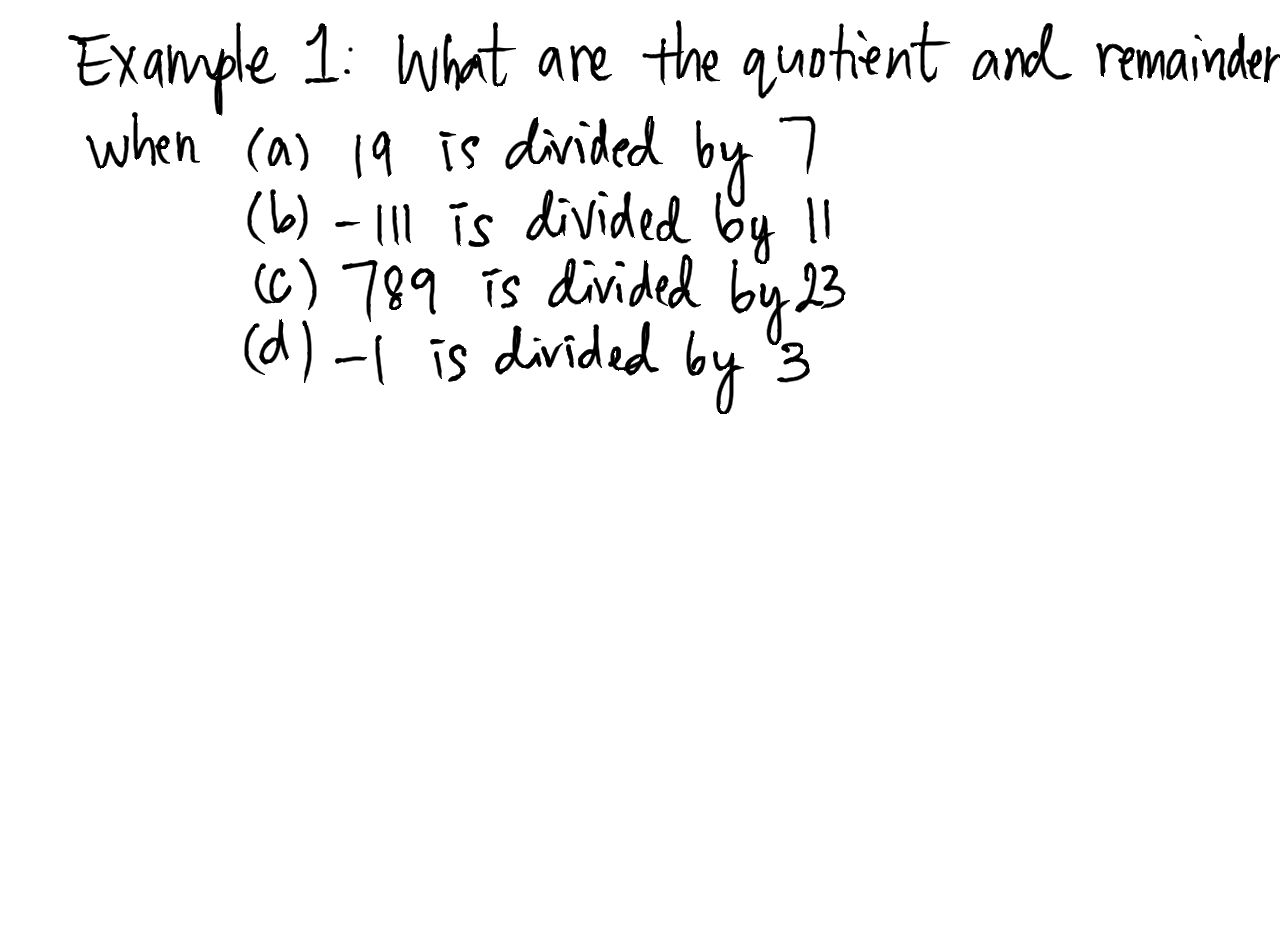 Example 1: What are the quotient and remainder
when (a) 19 is divided by 7
(b) -111 is divided by 11
(c) 789 is divided by 23
(d) -1 is divided by 3